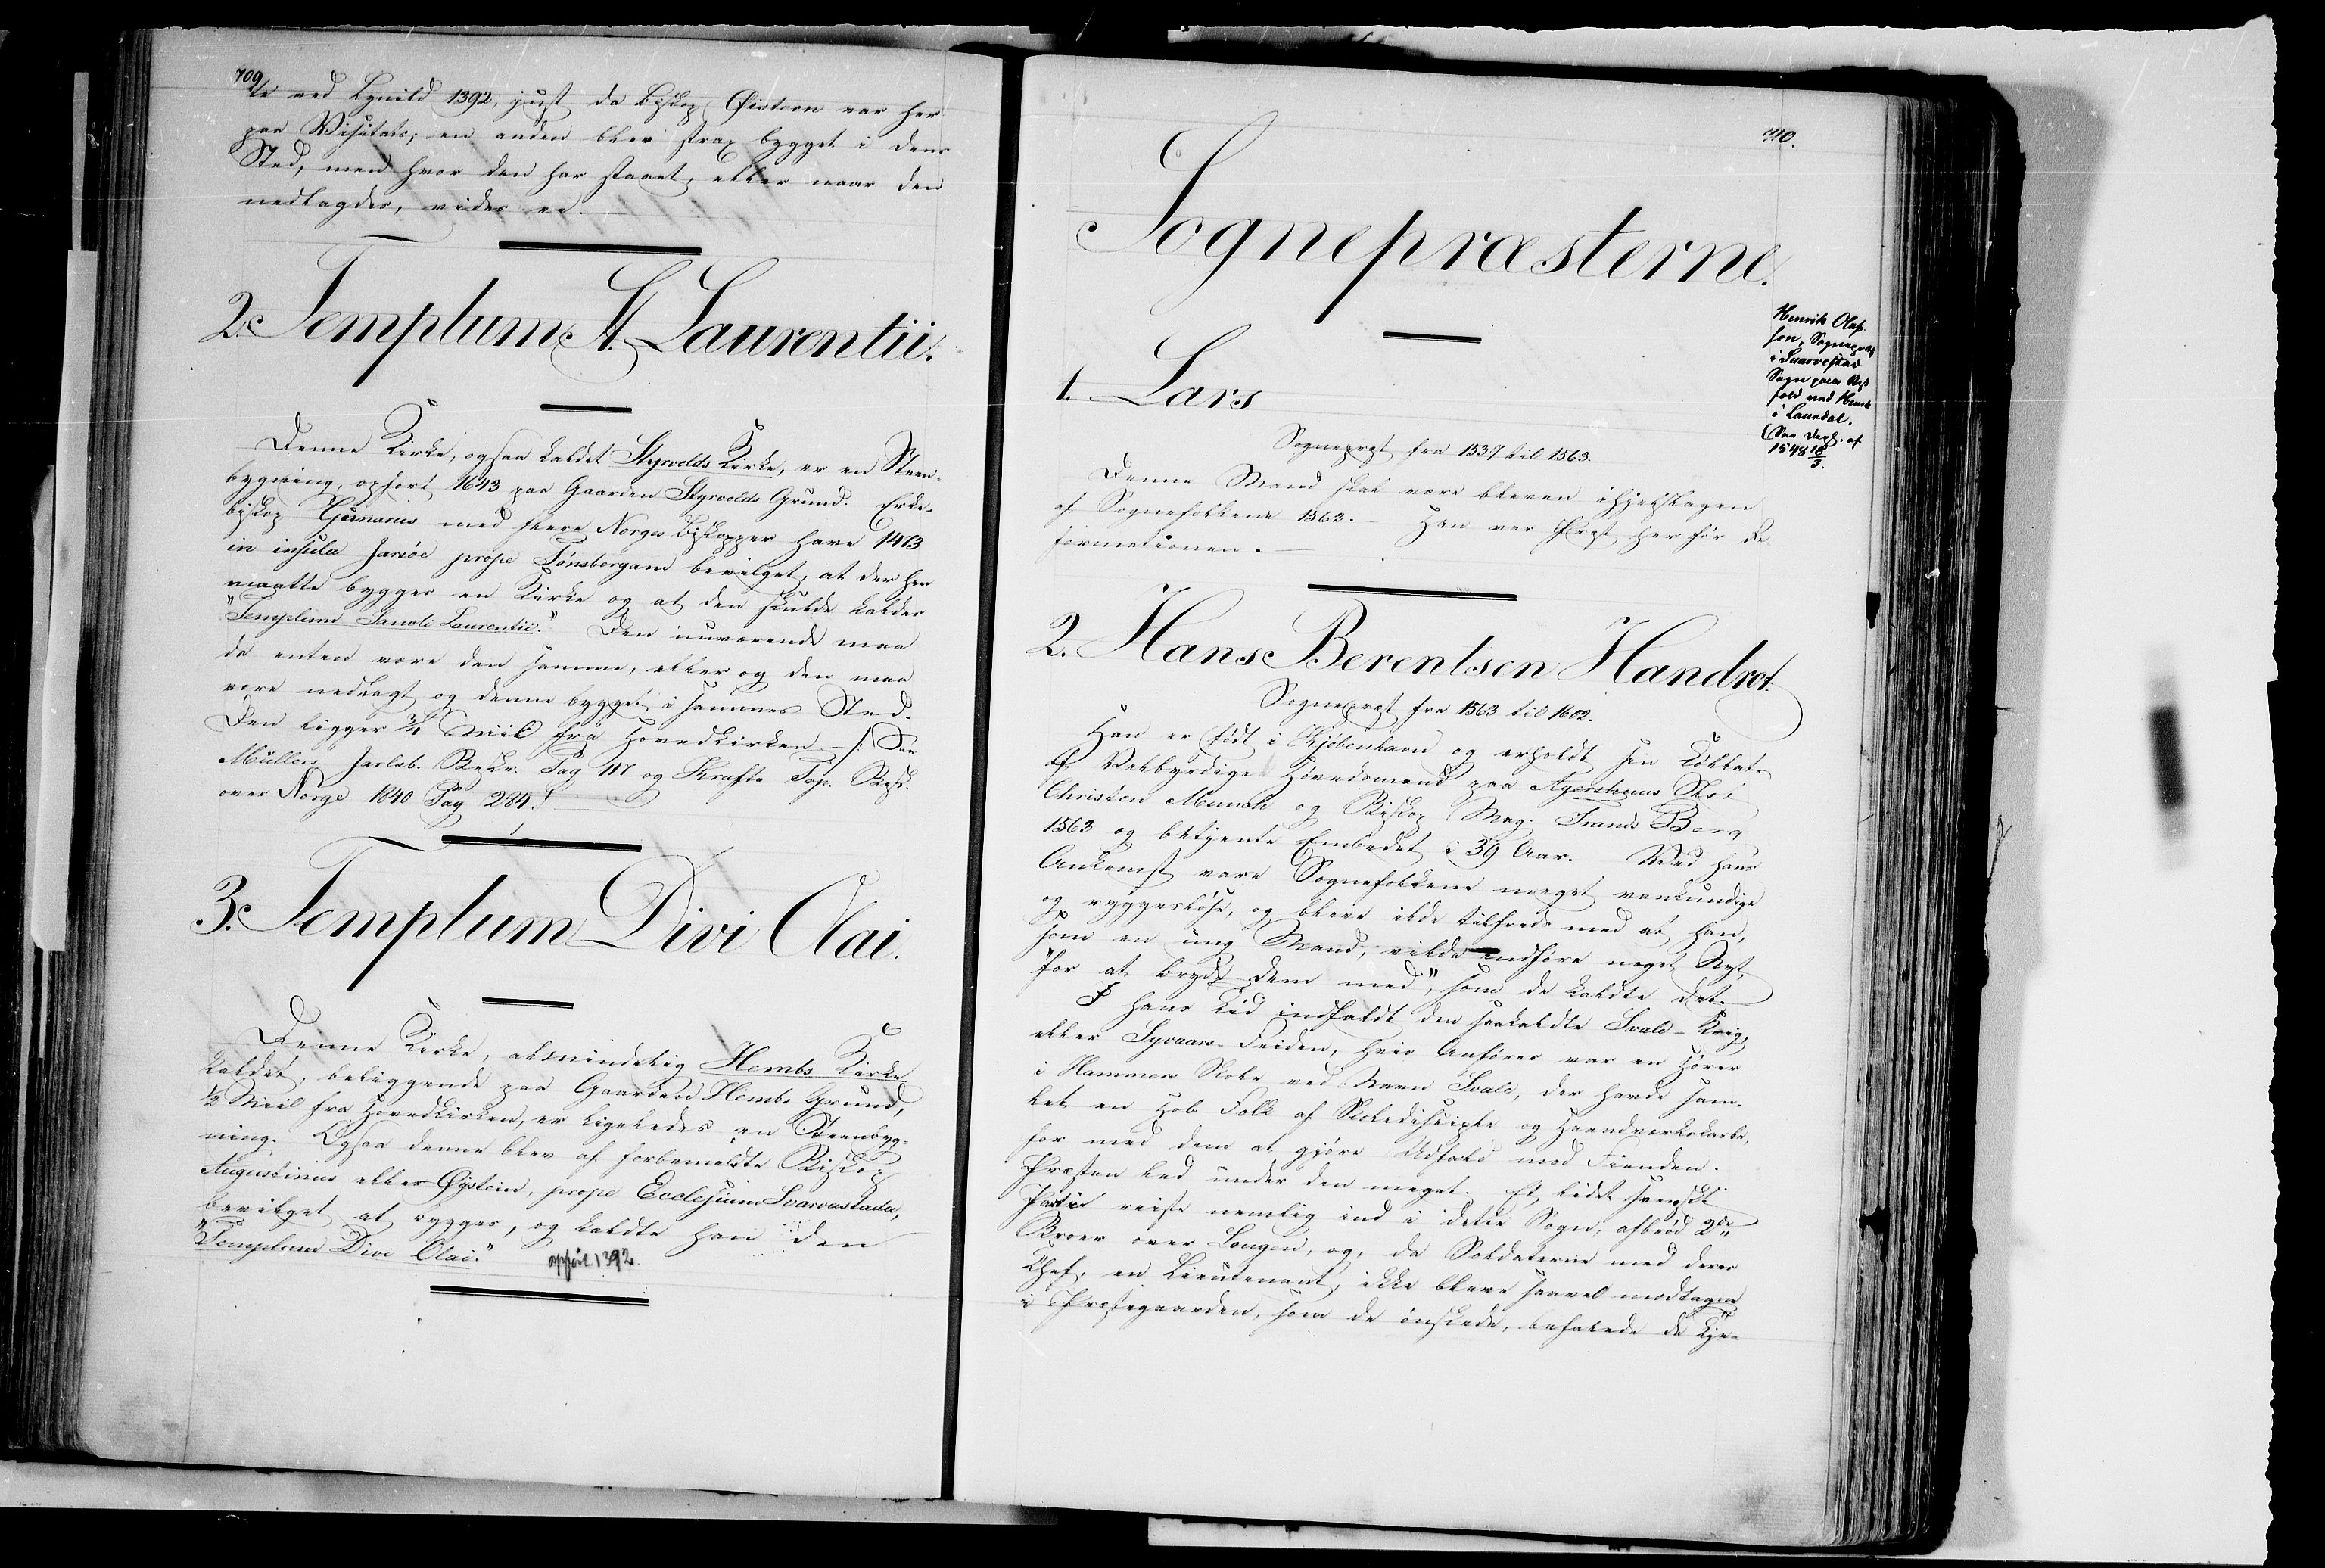 709
te ved Lynild 1392, just da Biskop Øistein var her
paa Visitats; en anden blev strax bygget i dens
Sted, men hvor den har staaet, eller naar den
nedlagdes, vides ei.
2. Templum St. Laurentii.
Denne Kirke, ogsaa kaldet Styrvolds Kirke, er en Steen-
bygning, opført 1643 paa Gaarden Styrvolds Grund. Erke-
biskop Gunarus med flere Norges Biskopper have 1473
in insula Jarsöe prope Tønsbergam bevilget, at der her
maatte bygges en Kirke og at den skulde kaldes
"Templum Sancti Laurentii." Den nuværende maa
da enten være den samme, eller og den maa
være nedlagt og denne bygget i sammes Sted.
Den ligger 3/4 Miil fra Hovedkirken. /: See
Müllers Jarlsb. Beskr. Pag 117 og Krafts Top. Besk.
over Norge 1840 Pag 284. :/
3. Templum Divi Olai.
Denne Kirke, almindelig Hembs Kirke
kaldet, beliggende paa Gaarden Hembs Grund,
1/2 Miil fra Hovedkirken, er ligeledes en Steenbyg-
ning. Ogsaa denne blev af forbemeldte Biskop
Augustinus eller Øystein, prope Ecclesiam Svarvastadu,
bevilget at bygges, og kaldte han den
"Templum Divi Olai." opført 1392.
710.
Sognepræsterne.
Henrik Olaf-
sen, Sognepræst
i Svarvestad
Sogn paa Vest
fold ved Hemb
i Laurdal.
(See Dipl. af
1548 18/3.
1. Lars
Sognepræst fra 1537 til 1563.
Denne Mand skal være bleven ihjelslagen
af Sognefolkene 1563. – Han var Præst her før Re-
formationen.
2. Hans Berentsen Handrot.
Sognepræst fra 1563 til 1602.
Han er født i Kjøbenhavn og erholdt sin Kollats
af Velbyrdige Høvedsmand paa Agershuus Slot
Christen Munch og Biskop Mag. Frands Berg
1563 og betjente Embedet i 39 Aar. Ved hans
Ankomst vare Sognefolkene meget vankundige
og ryggesløse, og bleve ilde tilfreds med at han,
som en ung Mand, vilde indføre noget Nyt
"for at bryde dem med", som de kaldte det.
I hans Tid indfaldt den saakaldte Svale-Krig,
eller Syvaars-Feiden, hvis Anfører var en Hører
i Hammers Skole ved Navn Svale, der havde sam-
let en Hob Folk af Skoledisciple og Haandværkskarle,
for med dem at gjøre Udfald mod Fienden.
Præsten led under den meget. Et lidet svenskt
Partie reiste nemlig ind i dette Sogn, afbrød 2de
Broer over Lougen, og, da Soldaterne med deres
Chef, en Lieutenant, ikke bleve saavel modtagne
i Præstegaarden, som de ønskede, befalede de Kje-